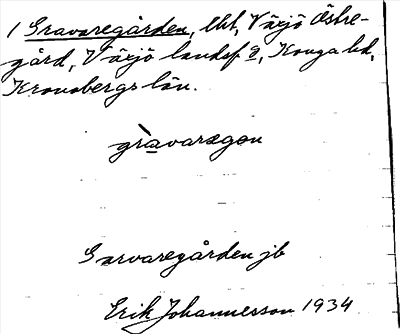 1 Gravaregården, lht, Växjö Östre-
gård, Växjö landsf ö, Konga hd,
Kronobergs län.
gravaragọn
Garvaregården jb
Erik Johannesson 1934